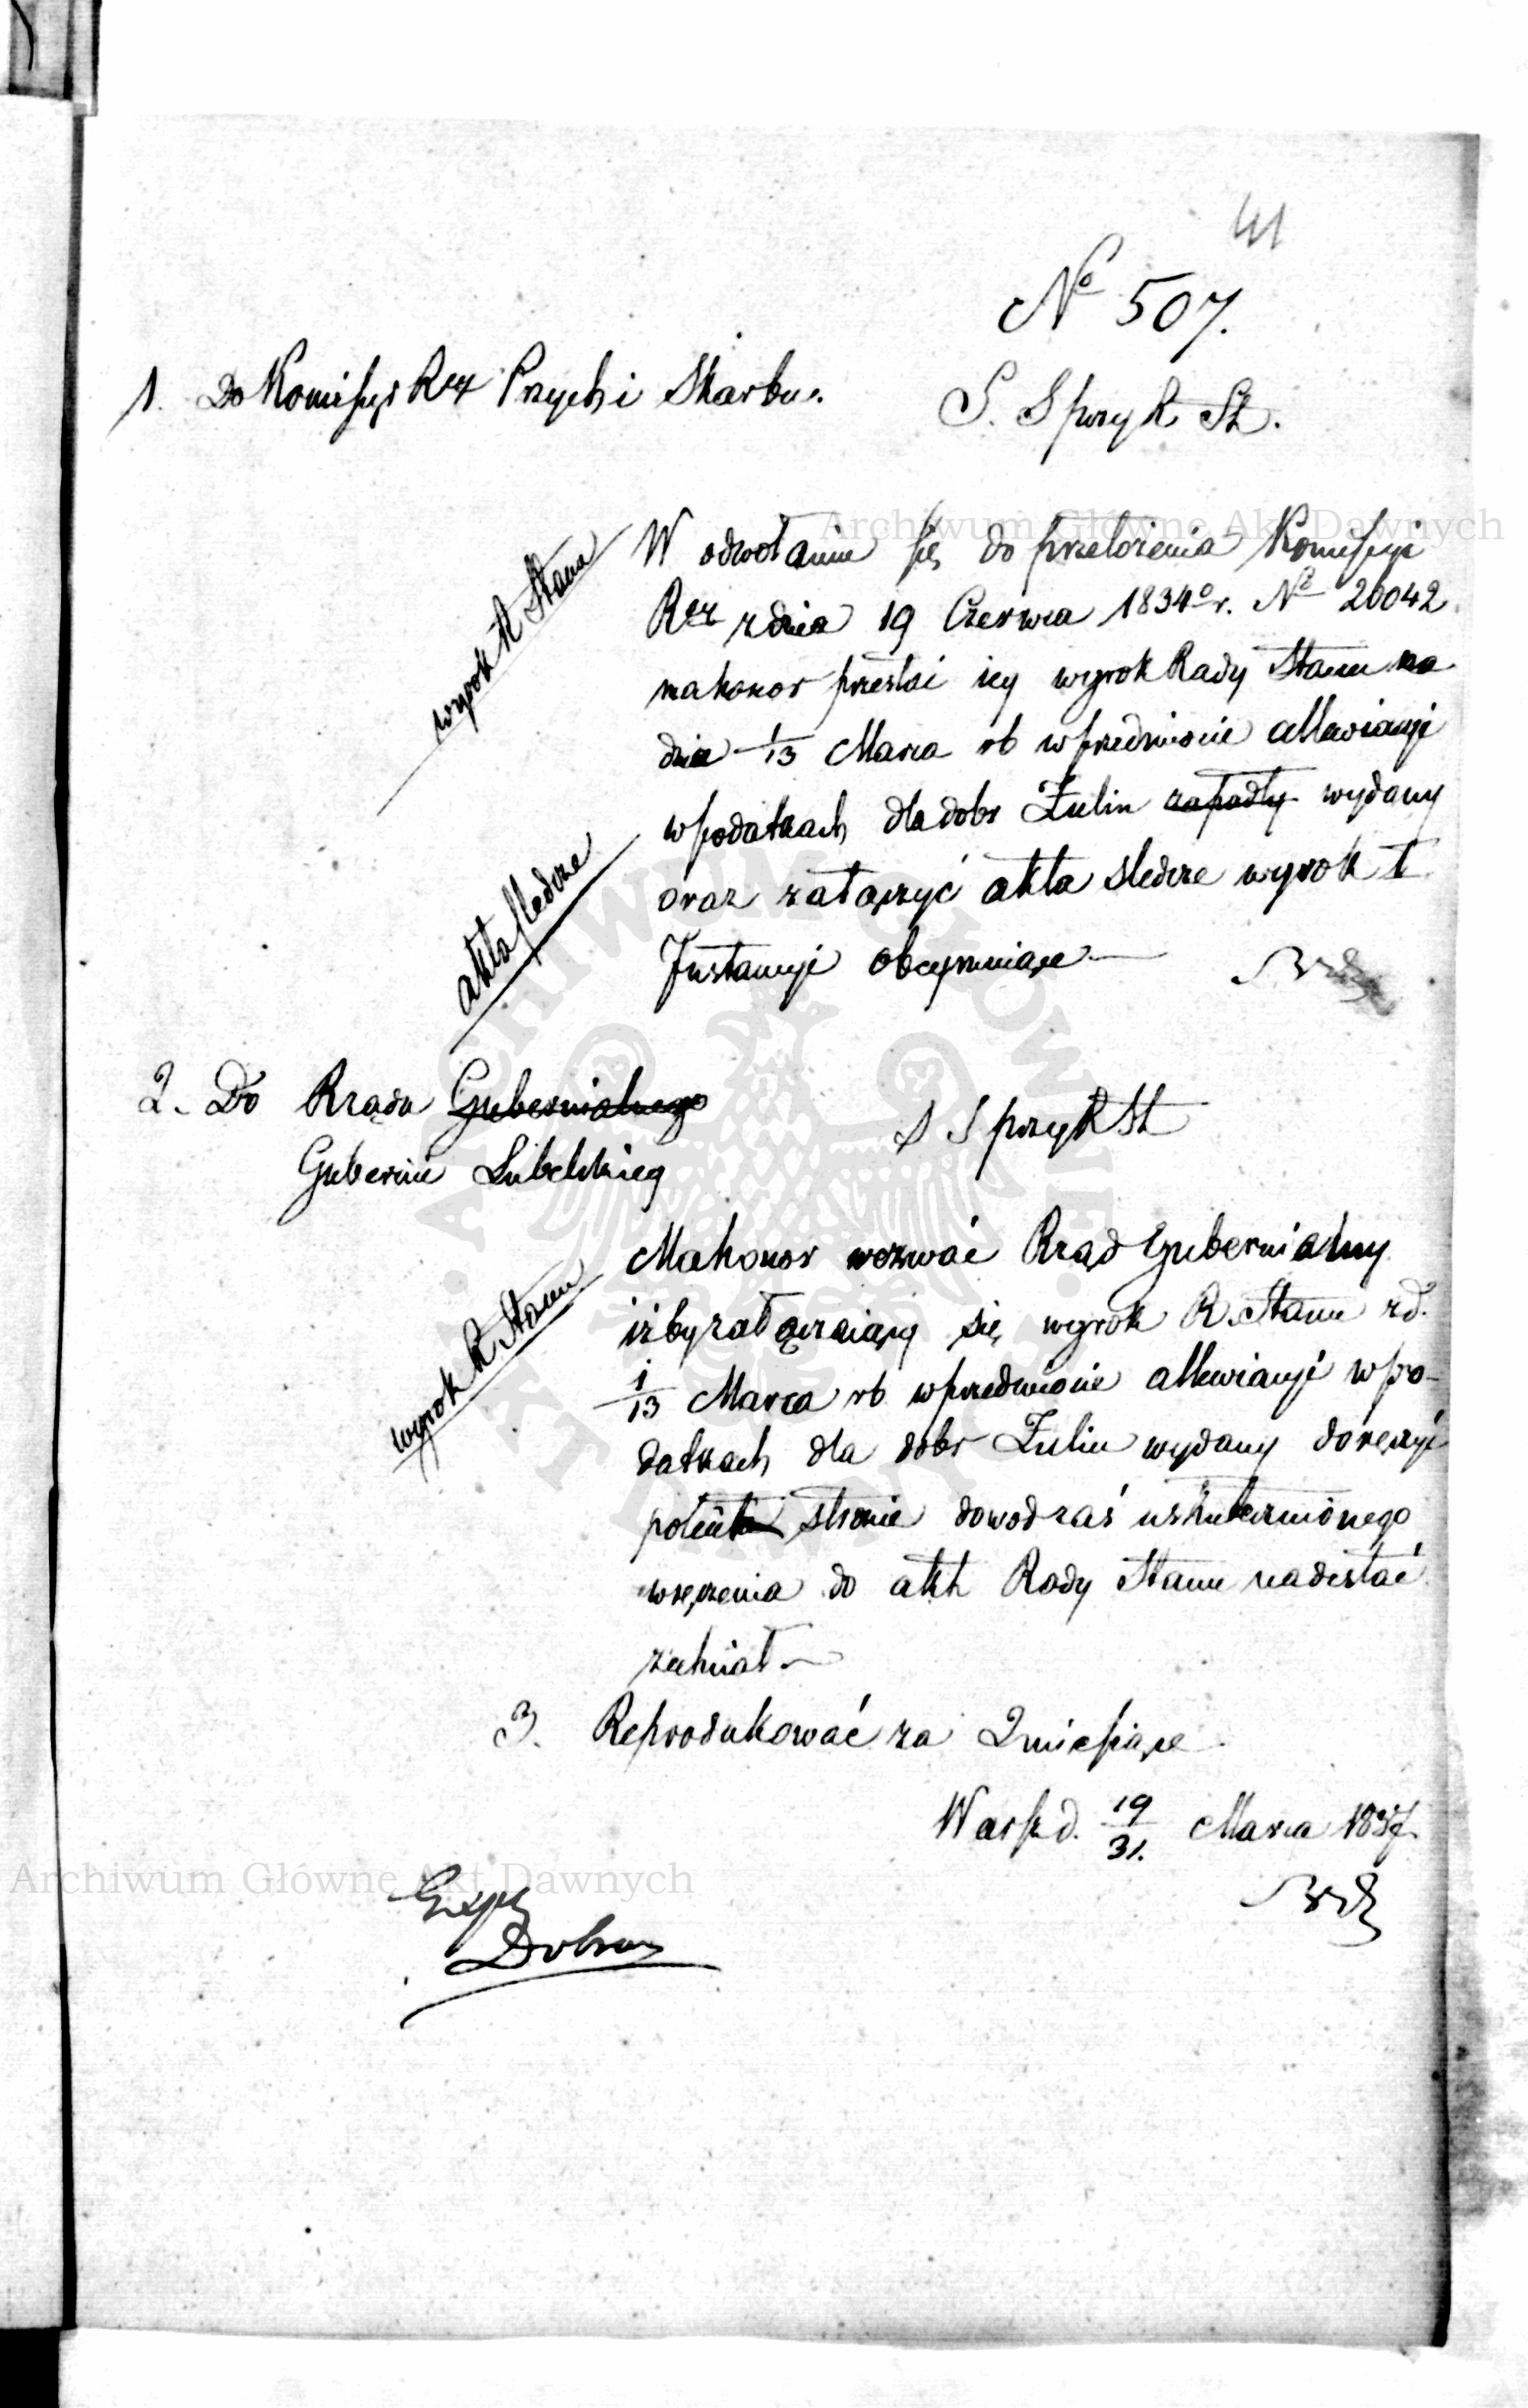 41
No 507.
1. Do Komissyi Rzz Przych i Skarbu.
S. S przy R St.
W odwołaniu się do przełożenia Komissyi
Rzz z dnia 19 Czerwca 1834o r. No 20042
mahonor przesłać iey wyrok Rady Stanu na
dnia 1/13 Marca rb w przedmiocie allewiacyi
w podatkach dla dobr Żulin zapadły wydany
oraz załączyć akta sledcze wyrok I
Instancyi obeymuiące
wyrok R Stanu
akta sledcze
2. Do Rządu Gubernialnego
Gubernii Lubelskiey
S S przy R St
Mahonor wezwać Rząd Gubernialny
iżby załączaiący się wyrok R. Stanu z d.
1/13 Marca rb w przedmiocie allewiacyi w po-
datkach dla dobr Żulin wydany doręczyć
stronie dowod zaś uskutecznionego
wręczenia do akt Rady Stanu nadesłać
zechciał
wyrok R Stanu
3. Reprodukować za 2 miesiące
Warsz d. 19/31. Marca 1837
Exp
Archiwum Główne Akt Dawnych
Archiwum Główne Akt Dawnych
ARCHIWUM GŁÓWNE AKT DAWNYCH